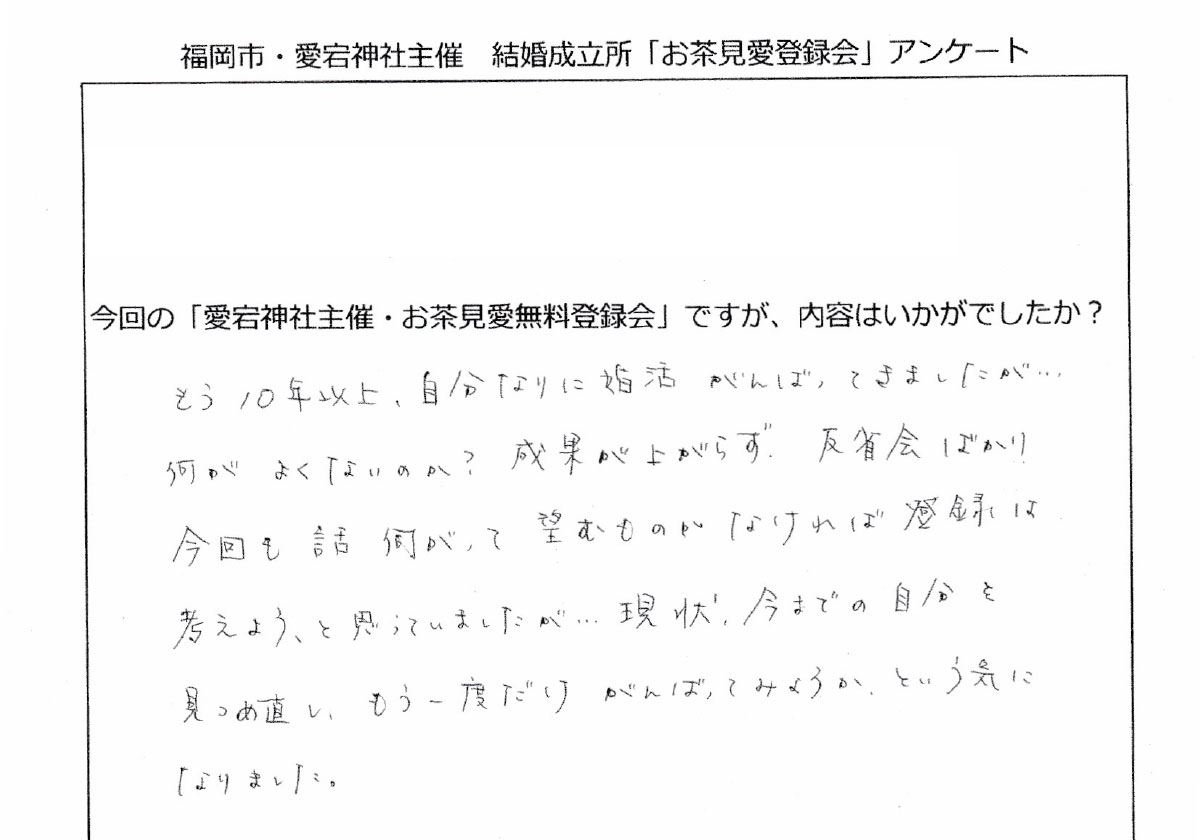 福岡市・愛宕神社主催　結婚成立所「お茶見愛登録会」アンケート
今回の「愛宕神社主催・お茶見愛無料登録会」ですが、内容はいかがでしたか？
もう10年以上、自分なりに婚活がんばってきましたが…
何がよくないのか？成果が上がらず、反省会ばかり
今回も話何がって望むものがなければ登録は
考えよう、と思っていましたが…現状、今までの自分を
見つめ直し、もう一度だけがんばってみようか、という気に
なりました。